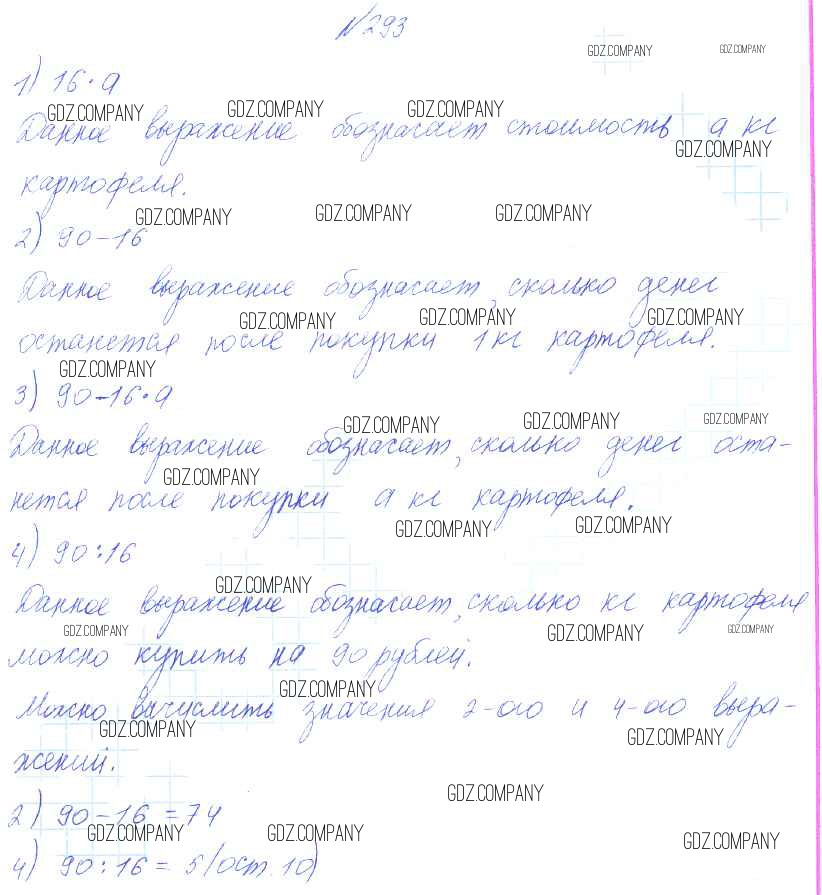 №293
GDZ.COMPANY GDZ.COMPANY
1) 16·a
GDZ.COMPANY GDZ.COMPANY GDZ.COMPANY
Данное выражение обозначает стоимость а кг
GDZ.COMPANY
картофеля.
GDZ.COMPANY GDZ.COMPANY GDZ.COMPANY
2) 90-16
Данное выражение обозначает, сколько денег
GDZ.COMPANY GDZ.COMPANY GDZ.COMPANY
останется после покупки 1 кг картофеля.
GDZ.COMPANY
3) 90-16·a
GDZ.COMPANY GDZ.COMPANY GDZ.COMPANY
Данное выражение обозначает, сколько денег оста-
GDZ.COMPANY
нется после покупки а кг картофеля.
GDZ.COMPANY GDZ.COMPANY
4) 90:16
GDZ.COMPANY
Данное выражение обозначает, сколько кг картофеля
GDZ.COMPANY GDZ.COMPANY GDZ.COMPANY
можно купить на 90 рублей.
GDZ.COMPANY
Можно вычислить значения 2-ого и 4-ого выра-
GDZ.COMPANY GDZ.COMPANY
жений.
GDZ.COMPANY
2) 90-16=74
GDZ.COMPANY GDZ.COMPANY GDZ.COMPANY
4) 90:16=5(ост.10)